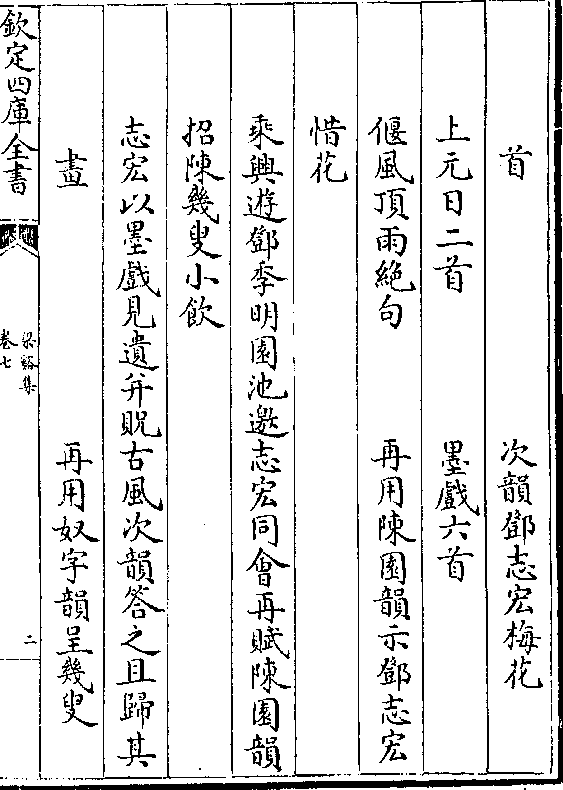 首　次韻鄧志宏梅花
上元日二首　墨戲六首
偃風頂雨絶句　再用陳園韻示鄧志宏
惜花
乘興遊鄧季明園池邀志宏同會再賦陳園韻
招陳幾叟小飲
志宏以墨戲見遺并貺古風次韻答之且歸其
畫　再用奴字韻呈幾叟
欽定四庫全書
梁谿集
卷七
二